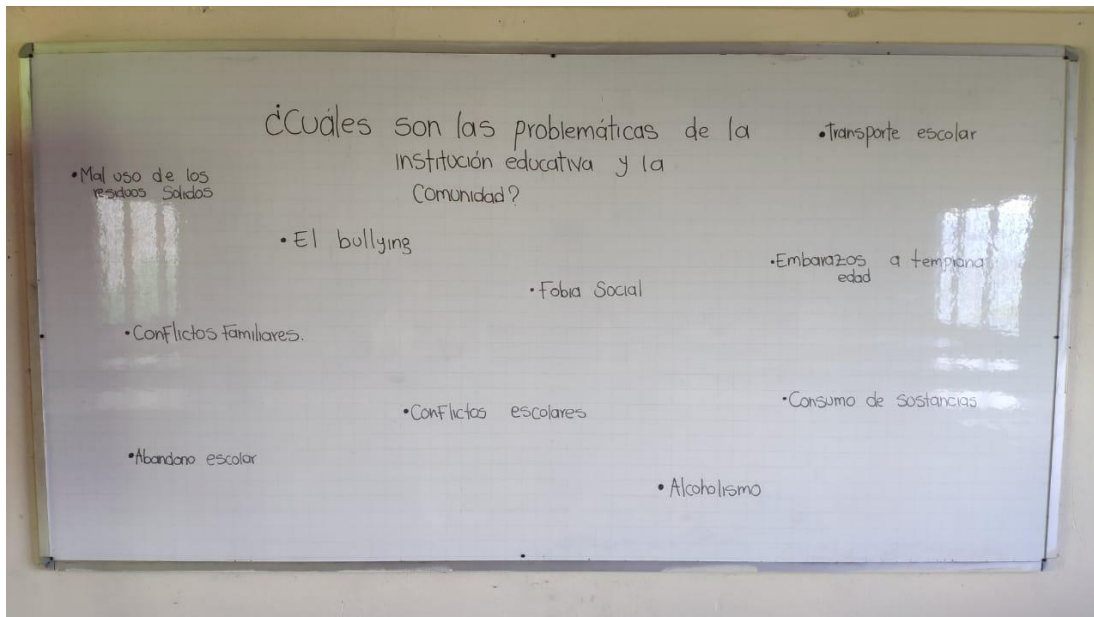 ¿Cuáles son las problemáticas de la
institución educativa y la
Comunidad?
•Transporte escolar
•Mal uso de los
residuos Solidos
•El bullying
•Embarazos a temprana
edad
•Fobia Social
•Conflictos familiares.
•Consumo de sustancias
•Conflictos escolares
•Abandono escolar
•Alcoholismo